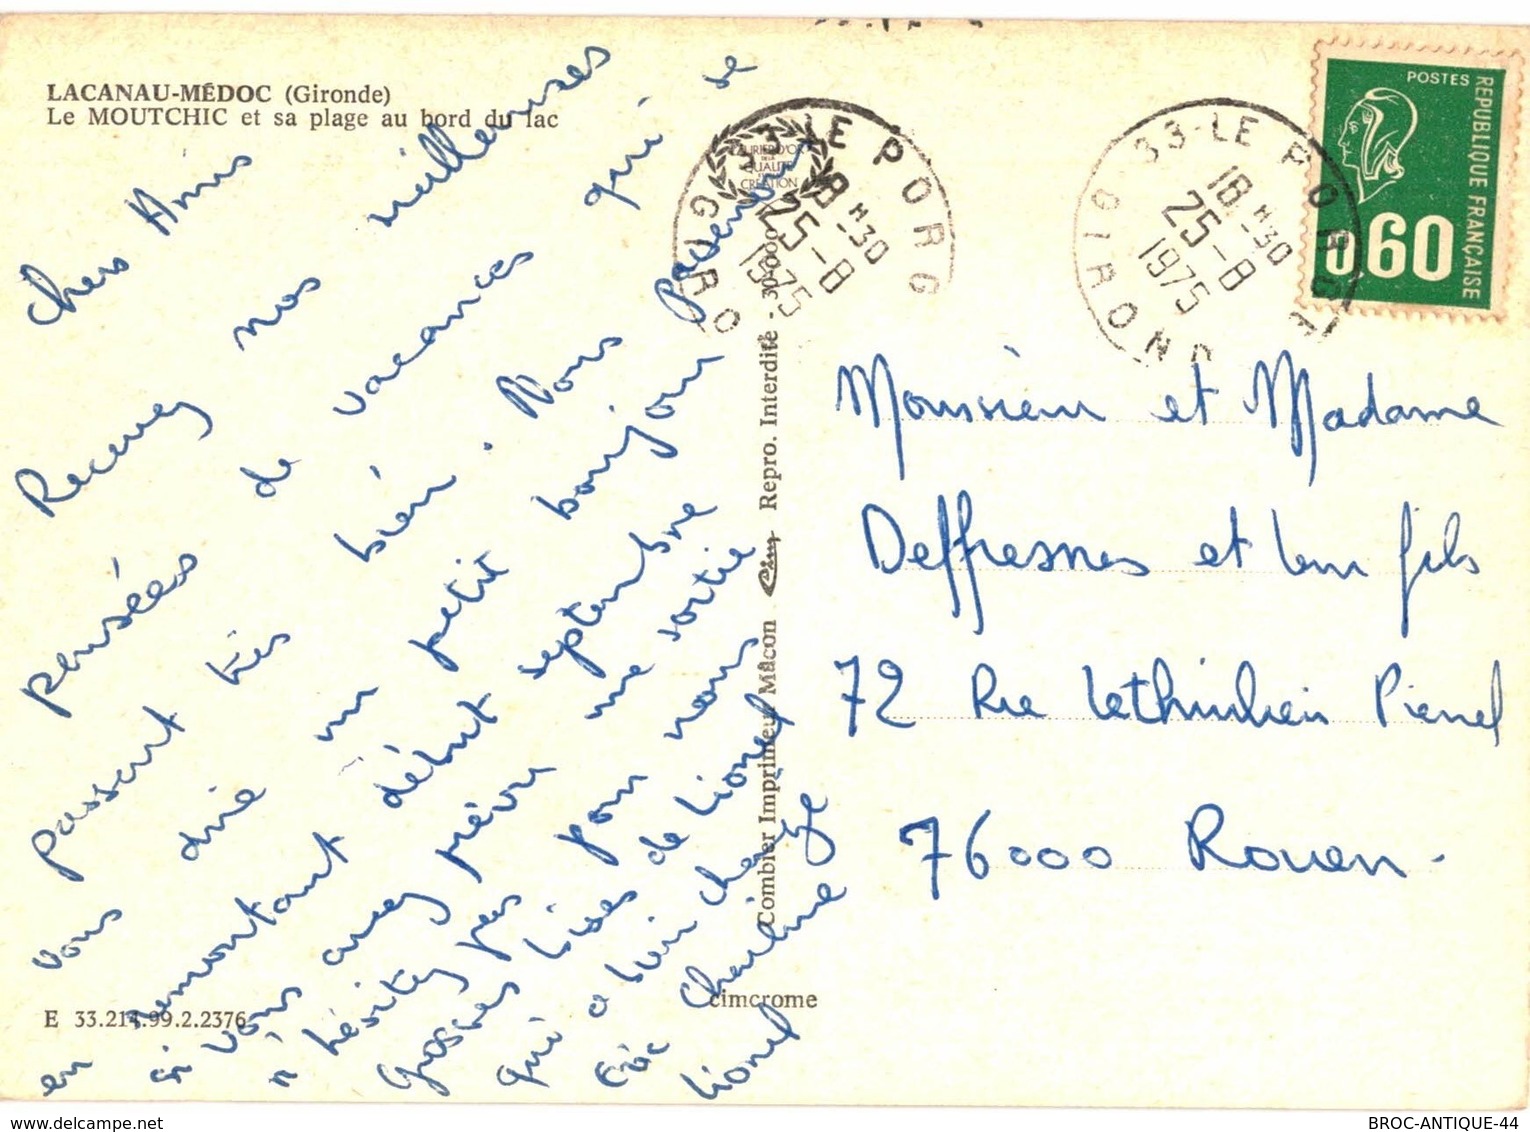 LACANAU-MÉDOC (Gironde)
Le MOUTCHIC et sa plage au bord du lac
Chers Amis
Recevez nos meilleures
pensées de vacances qui se
passent très bien. Nous
vous dirie un petit bonjour
en remontant début septembre
si vous avez prévu une sortie
n'hésitez pas pour nous
Grosses bises de Lionel
qui a bien changé
Eric Charline
Lionel
E 33.214.99.2.2376
Combier Imprimeur Mâcon Cim Repro. Interdite - 30.000
cimcrome
LAURIER D'OR
DE LA
QUALITÉ
CRÉATION
33 LE PORG
GIRO
18 H 30
25-8
1975
33-LE PORGE
GIRONDE
18 H 30
25-8
1975
POSTES
REPUBLIQUE FRANÇAISE
0,60
Monsieur et Madame
Deffresnes et leur fils
72 Rue Lethuilier Pinel
76000 Rouen.
delcampe.net
BROC-ANTIQUE-44